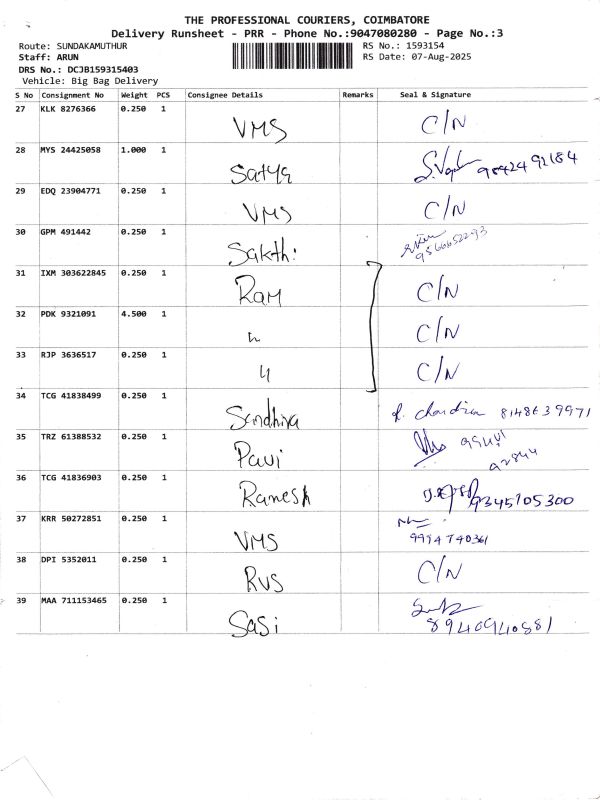 THE PROFESSIONAL COURIERS, COIMBATORE
Delivery Runsheet - PRR - Phone No.:9047080280 - Page No.:3
Route: SUNDAKAMUTHUR RS No.: 1593154
Staff: ARUN RS Date: 07-Aug-2025
DRS No.: DCJB159315403
Vehicle: Big Bag Delivery
S No Consignment No Weight PCS Consignee Details Remarks Seal & Signature
27 KLK 8276366 0.250 1 VMS C/N
28 MYS 24425058 1.000 1 Satya 9842492184
29 EDQ 23904771 0.250 1 VMS C/N
30 GPM 491442 0.250 1 Sakthi 9566652293
31 IXM 303622845 0.250 1 Ram C/N
32 PDK 9321091 4.500 1 " C/N
33 RJP 3636517 0.250 1 " C/N
34 TCG 41838499 0.250 1 Sandhiya 8148639971
35 TRZ 61388532 0.250 1 Pavi
92844
36 TCG 41836903 0.250 1 Ramesh 9345105300
37 KRR 50272851 0.250 1 VMS
9994740361
38 DPI 5352011 0.250 1 RVS C/N
39 MAA 711153465 0.250 1 Sasi
8940940881